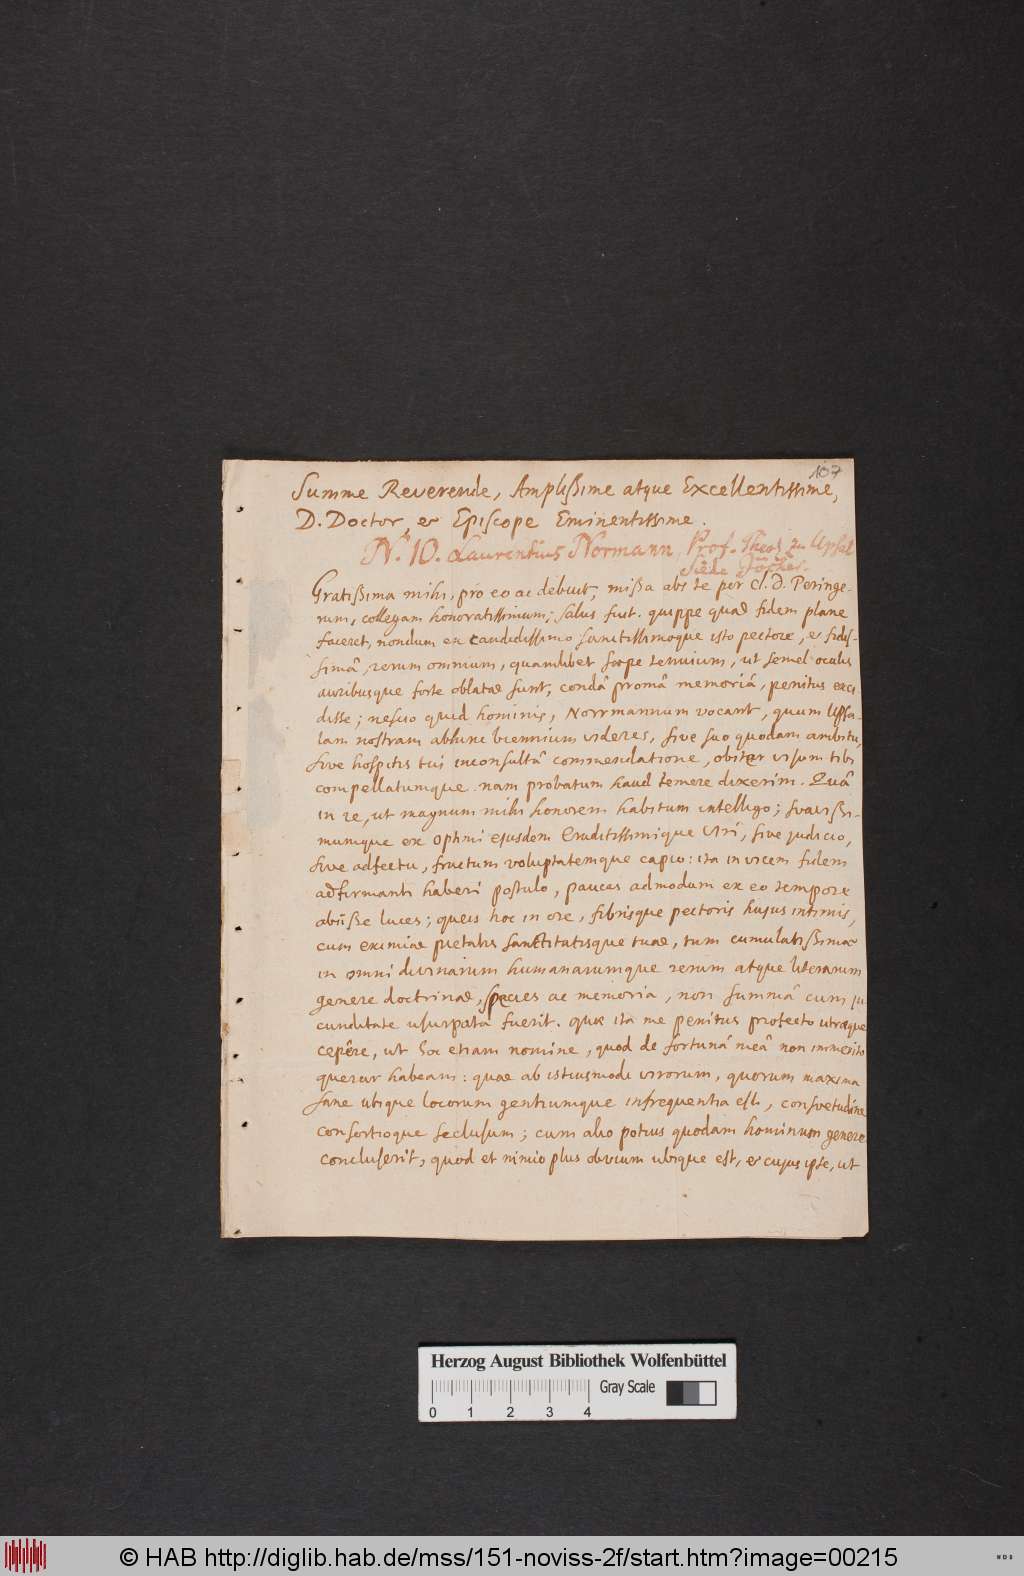 107
Summe Reverende, Amplissime atque Excellentissime,
D. Doctor, et Episcope Eminentissime.
N.º 10. Laurentius Normann Prof. Theol. zu Upsal
Siehe Jöcher.
Gratissima mihi, pro eo ac debuit, missa abs te per Cl. D. Peringe-
rum, collegam honoratissimum; salus fuit. quippe quae fidem plane
faceret, nondum ex candidissimo sanctissimoque isto pectore, et fidis-
simâ, rerum omnium, quamlibet saepe tenuium, ut semel oculis
auribusque forte oblatae sunt, condâ promâ memoriâ, penitus exci-
disse; nescio quid hominis, Norrmannum vocant, quum Upsa-
lam nostram abhinc biennium videres, sive suo quodam ambitu,
sive hospitis tui inconsultâ commendatione, obiter visum tibi
compellatumque. nam probatum haud temere dixerim. Quâ
in re, ut magnum mihi honorem habitum intelligo; suavissi-
mumque ex optimi ejusdem Eruditissimique Viri, sive judicio,
sive adfectu, fructum voluptatemque capio: ita in vicem fidem
adfirmanti haberi postulo, paucas admodum ex eo tempore
abiisse luces; queis hoc in ore, fibrisque pectoris hujus intimis,
cum eximiae pietatis sanctitatisque tuae, tum cumulatissimae
in omni divinarum humanarumque rerum atque literarum
genere doctrinae, species ac memoria, non summâ cum ju-
cunditate usurpata fuerit. quae ita me penitus profecto utraeque
cepêre, ut hoc etiam nomine, quod de fortunâ meâ non immerito
querar habeam: quae ab istiusmodi virorum, quorum maxima
sane ubique locorum gentiumque infrequentia est, consvetudine
consortioque seclusum; cum alio potius quodam hominum genere
concluserit, quod et nimio plus obvium ubique est, et cujus ipse, ut
Herzog August Bibliothek Wolfenbüttel
Gray Scale
0 1 2 3 4
© HAB http://diglib.hab.de/mss/151-noviss-2f/start.htm?image=00215